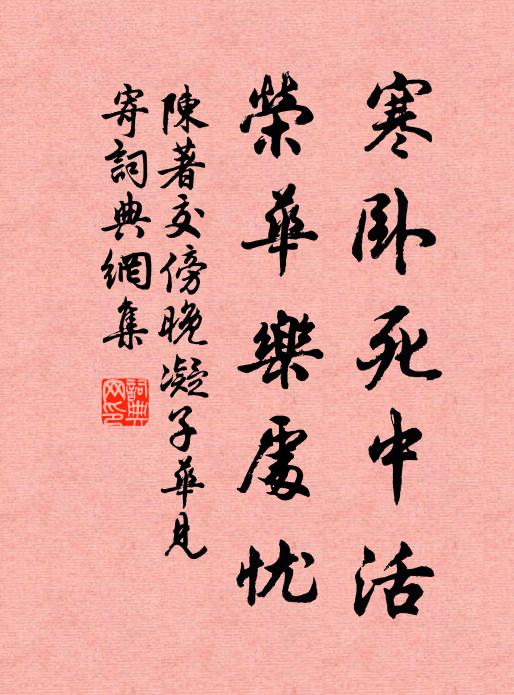 寒臥死中活
榮華樂處忧
陳著交傍晚凝子華見
寄詞典網集
詞典
网印